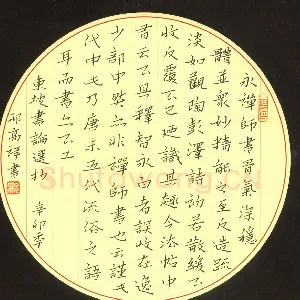 永禅師書骨氣深穩
體並衆妙精能之至反造疏
淡如觀陶彭澤詩初若散緩不
收反覆不已迺識其趣今法帖中
有云不具釋智永白者誤收在逸
少部中然亦非禪師書也云謹此
代申此乃唐末五代流俗之語
耳而書亦不工
東坡書論選抄 辛卯季
邱高祥書
Shufawang.cn